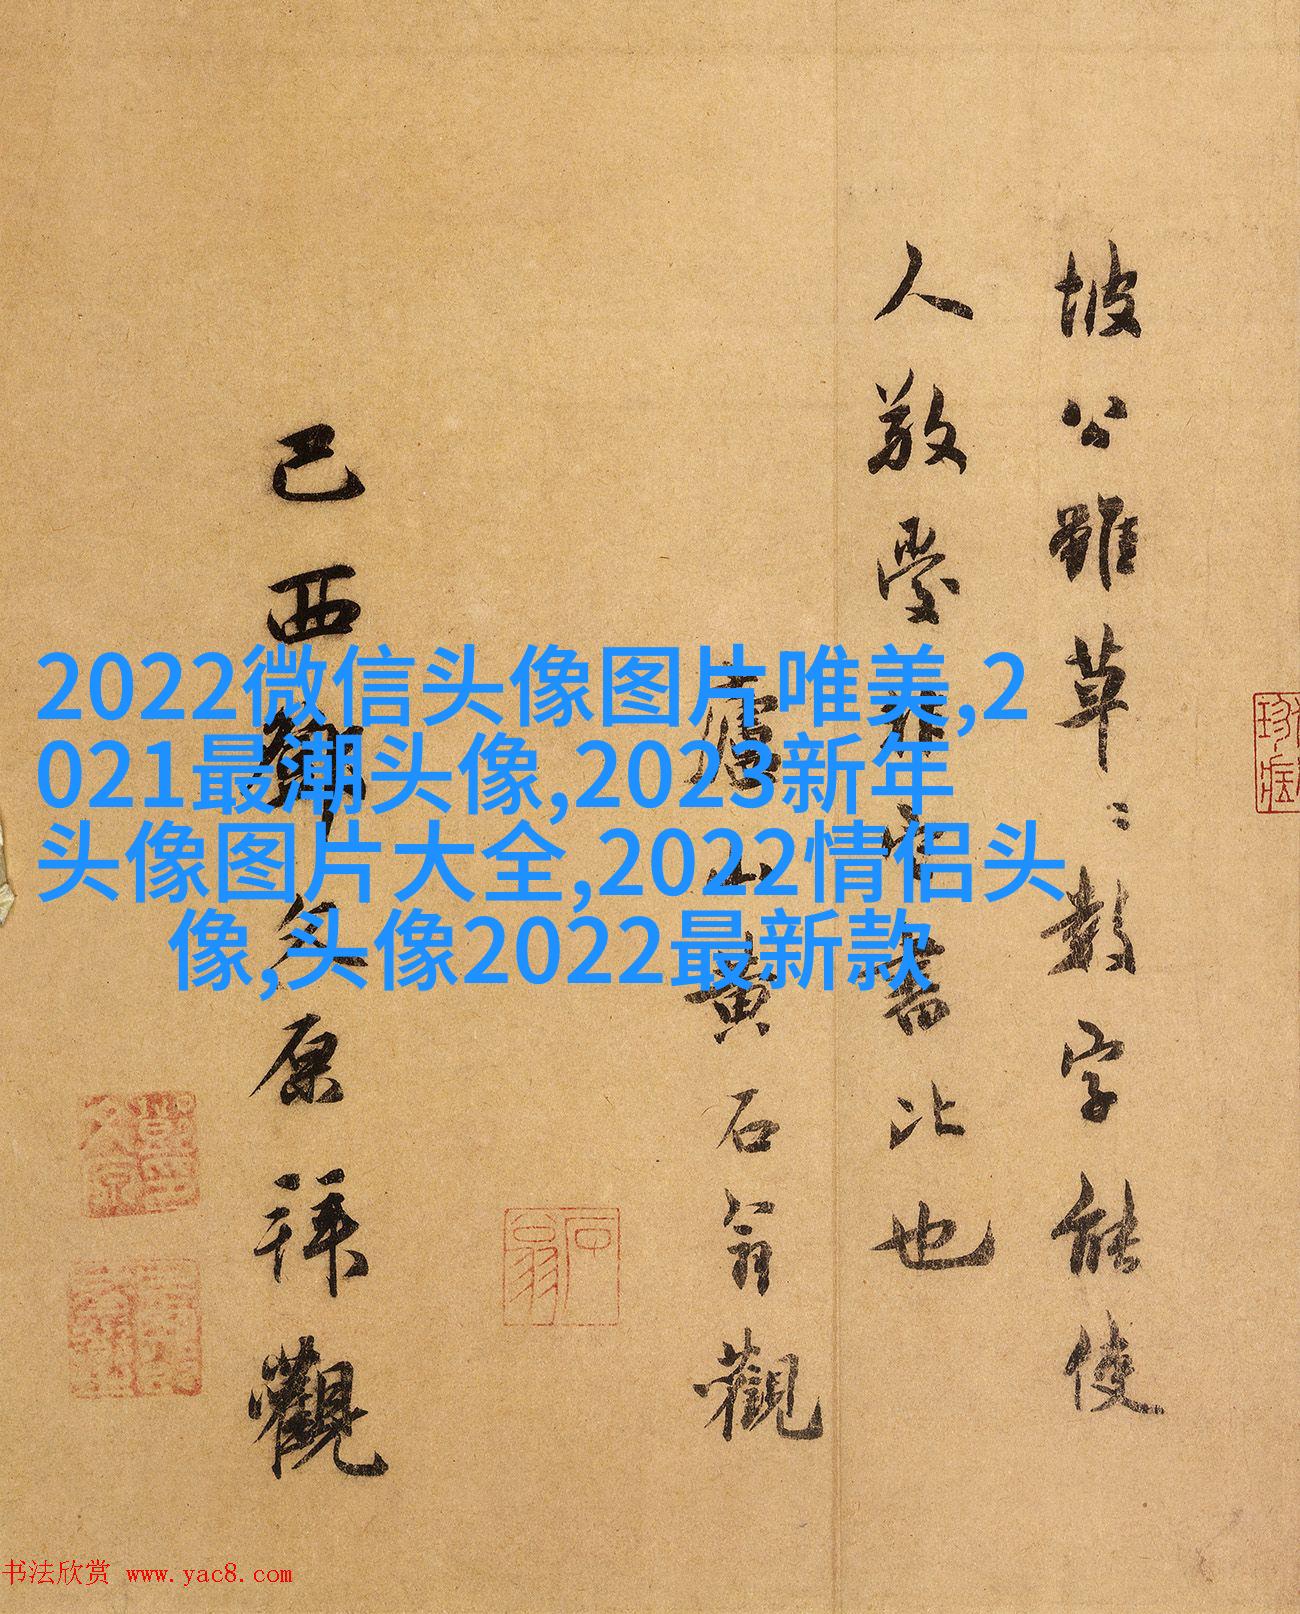 坡公雖草〻數字能使
人敬愛非它書比也
廬山黃石翁觀
己酉鄧文原拜觀
2022微信头像图片唯美,2
021最潮头像,2023新年
头像图片大全,2022情侣头
像,头像2022最新款
石翁
书法欣赏 www.yac8.com